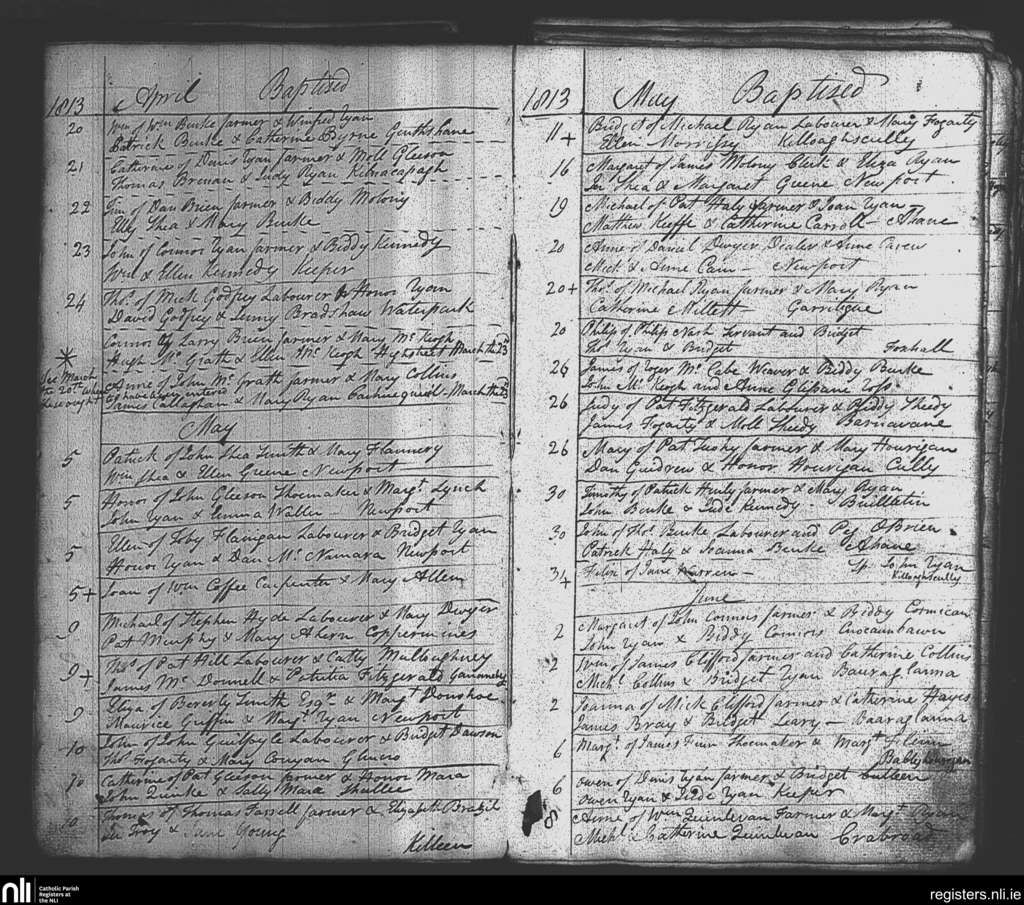 1813 April Baptised
20 Wm of Wm Burke farmer & Winifred Ryan
Patrick Burke & Catherine Byrne
21 Catherine of Denis Ryan farmer & Moll Gleeson
Thomas Brenan & Judy Ryan Kilnacapagh
22 Jim of Dan Brien farmer & Biddy Molony
Elly Shea & Mary Burke
23 John of Connor Ryan farmer & Biddy Kennedy
Wm & Ellen Kennedy Keeper
24 Thos. of Mick Godfrey Labourer & Honor Ryan
David Godfrey & Jenny Bradshaw Waterpark
* Connor of Larry Brien farmer & Mary Mc Keogh
Hugh Mc Grath & Ellen Mc Keogh Highstreet March the 23d
See March Anne of John Mc Grath farmer & Mary Collins
the 20th where these ought to have been entered
James Callaghan & Mary Ryan March the
May
5 Patrick of John Shea Smith & Mary Flannery
Wm Shea & Ellen Greene Newport
5 Honor of John Gleeson Shoemaker & Margt. Lynch
John Ryan & Emma Waller Newport
5 Ellen of Toby Flanigan Labourer & Bridget Ryan
Honor Ryan & Dan Mc Namara Newport
5+ Joan of Wm Coffee Carpenter & Mary Allen
9 Michael of Stephen Hyde Labourer & Mary Dwyer
Pat Murphy & Mary Ahern Coppermines
9+ Thos. of Pat Hill Labourer & Catty Mulloughney
James Mc Donnell & Patritia Fitzgerald
9 Eliza of Beverly Smith Esqr. & Margt Donohoe
Maurice Griffin & Margt. Ryan Newport
10 John of John Guilfoyle Labourer & Bridget Dawson
Thos. Fogarty & Mary Conyan
10 Catherine of Pat Gleeson farmer & Honor Mara
John Quinke & Sally Mara Shallee
10 Thomas of Thomas Farrell farmer & Elizabeth Brazil
Troy & Jane Young Killeen
1813 May Baptised
11+ Bridget of Michael Ryan Labourer & Mary Fogarty
Ellen Morrissy Killoaghscully
16 Margaret of James Molony Clerk & Eliza Ryan
Shea & Margaret Greene Newport
19 Michael of Pat Haly farmer & Joan Ryan
Matthew Keeffe & Catherine Carroll - Ahane
20 Anne of Daniel Dwyer Dealer & Anne Caven
Mick & Anne Cain - Newport
20+ Thos. of Michael Ryan farmer & Mary Ryan
Catherine Millett - Garritigue
20 Philip of Philip Nash Servant and Bridget
Thos. Ryan & Bridget Foxhall
26 James of Roger Mc Cabe Weaver & Biddy Burke
John Mc Keogh and Anne Glisane Ross
26 Judy of Pat Fitzgerald Labourer & Biddy Sheedy
James Fogarty & Moll Sheedy Barnavane
26 Mary of Pat Tuohy farmer & Mary Hourigan
Dan & Honor Hourigan Cully
30 Timothy of Patrick Healy farmer & Mary Ryan
John Burke & Jude Kennedy
30 John of Thos. Burke Labourer and Peg OBrien
Patrick Haly & Joanna Burke Ahane
31+ of Jane - Sp. John Ryan
Killoaghscully
June
2 Margaret of John Connors farmer & Biddy Cormican
John Ryan & Biddy Connors Cnocaunbawn
2 Wm of James Clifford farmer and Catherine Collins
Michl. Collins & Bridget Ryan Bauraglanna
2 Joanna of Mick Clifford farmer & Catherine Hayes
James Bray & Bridget Leary - Baaraglanna
6 Margt. of James Finn Shoemaker & Margt
6 Owen of Denis Ryan farmer & Bridget Culleen
Owen Ryan & Jude Ryan Keeper
8 Anne of Wm Quinlevan Farmer & Margt Ryan
Michl. & Catherine Quinlevan Crabroad
nli Catholic Parish
Registers at
the NLI
registers.nli.ie